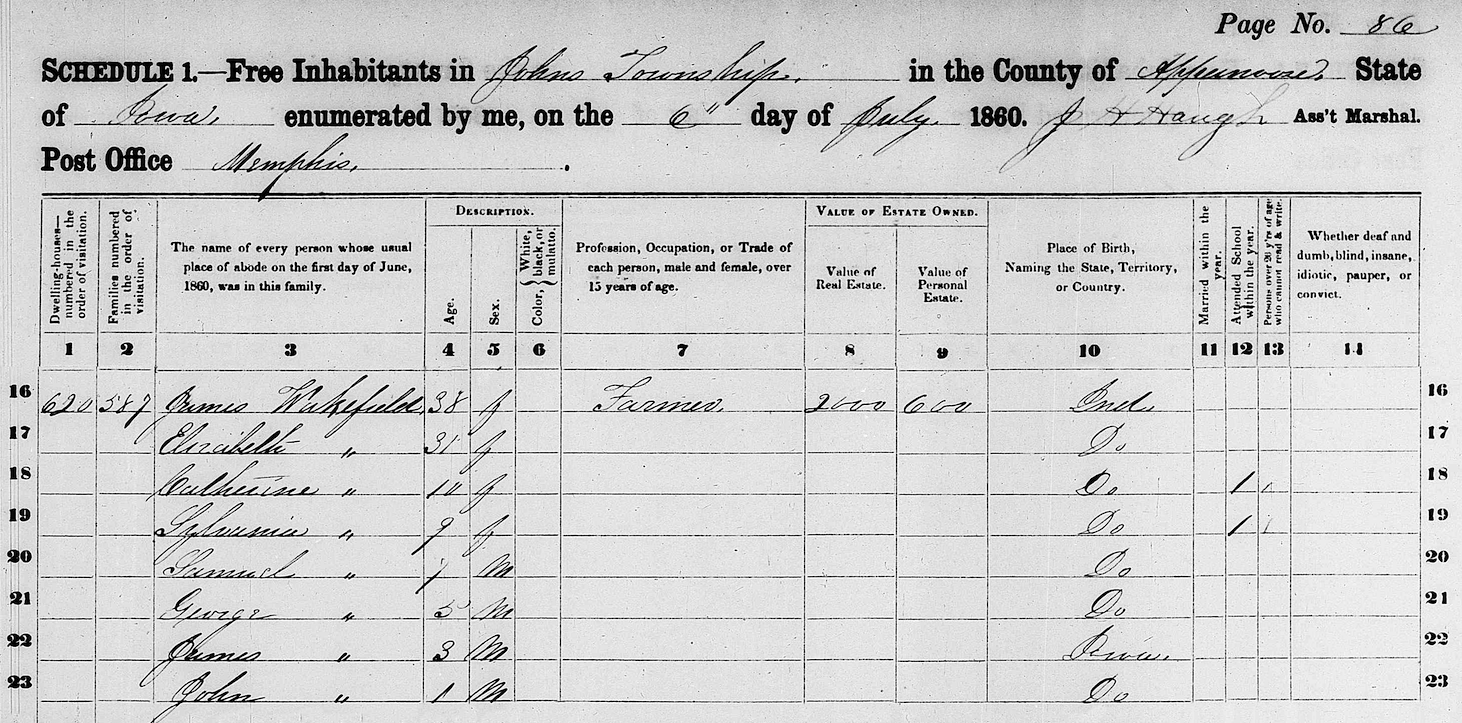 Page No. 86
SCHEDULE 1.—Free Inhabitants in Johns Township. in the County of Appanoose. State
of Iowa, enumerated by me, on the 6" day of July. 1860. J H Haugh Ass't Marshal.
Post Office Memphis. .
Dwelling-houses—numbered in the order of visitation.
Families numbered in the order of visitation.
The name of every person whose usual
place of abode on the first day of June,
1860, was in this family.
DESCRIPTION.
Age.
Sex.
Color, { White, black, or mulatto.
Profession, Occupation, or Trade of
each person, male and female, over
15 years of age.
VALUE OF ESTATE OWNED.
Value of
Real Estate.
Value of
Personal
Estate.
Place of Birth,
Naming the State, Territory,
or Country.
Married within the year.
Attended School within the year.
Persons over 20 y'rs of age who cannot read & write.
Whether deaf and
dumb, blind, insane,
idiotic, pauper, or
convict.
1 2 3 4 5 6 7 8 9 10 11 12 13 14
16 620 587 James Wakefield 38 f Farmer. 2000 600 Ind. 16
17 Elizabeth " 31 f Do 17
18 Catherine " 10 f Do 1 18
19 Sylvania " 9 f Do 1 19
20 Samuel " 7 M Do 20
21 George " 5 M Do 21
22 James " 3 M Iowa. 22
23 John " 1 M Do 23